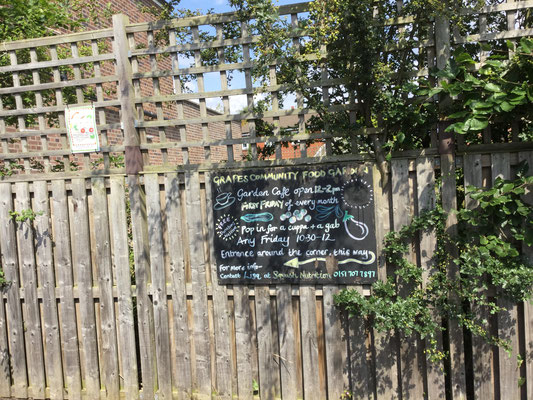 GRAPES COMMUNITY FOOD GARDEN
Garden Café open 12-2pm
of every month
Pop in for a cuppa + a gab
Any Friday 10:30-12
Entrance around the corner, this way
For more info-
Contact at Squash Nutrition 0151 707 7897